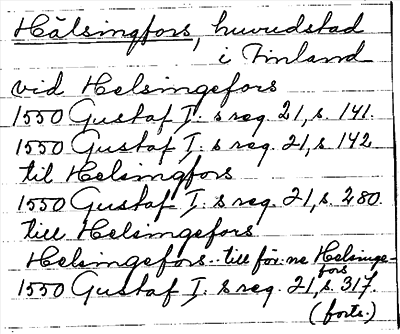 Hälsingfors, huvudstad
i Finland
vid Helsingefors
1550 Gustaf I:s reg. 21, s. 141.
1550 Gustaf I:s reg. 21, s. 142
til Helsingfors
1550 Gustaf I:s reg. 21, s. 280.
till Helsingefors
Helsingefors .. till för:ne Helsinge-
fors
1550 Gustaf I:s reg. 21, s. 317.
(forts.)